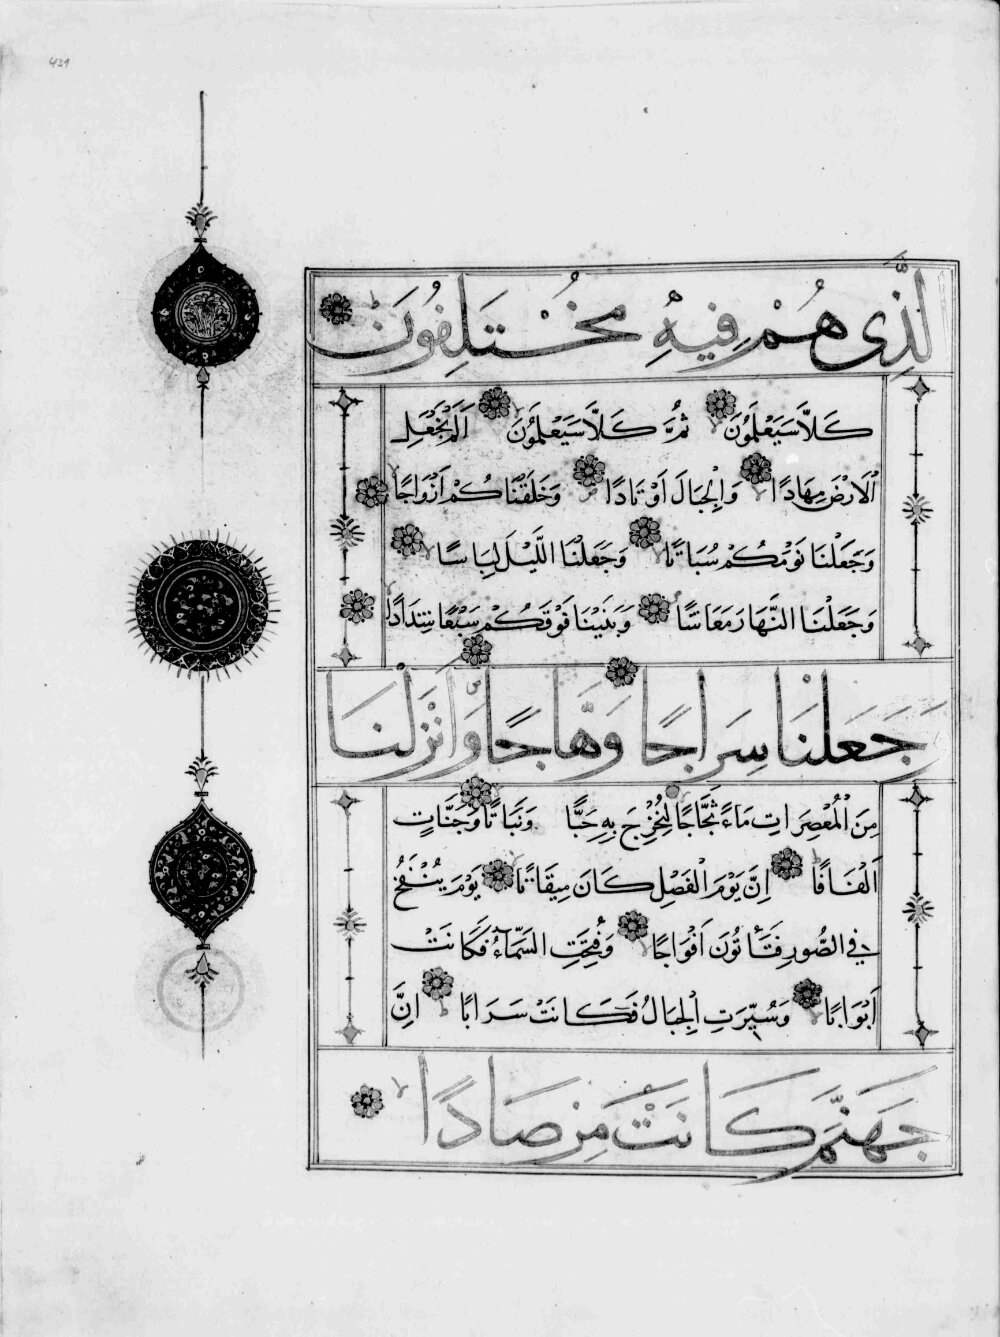 431
لَّذِى هُمْ فِيهِ مُخْتَلِفُونَ
كَلَّا سَيَعْلَمُونَ ثُمَّ كَلَّا سَيَعْلَمُونَ اَلَمْ نَجْعَلِ
الْاَرْضَ مِهَادًا وَالْجِبَالَ اَوْتَادًا وَخَلَقْنَاكُمْ اَزْوَاجًا
وَجَعَلْنَا نَوْمَكُمْ سُبَاتًا وَجَعَلْنَا اللَّيْلَ لِبَاسًا
وَجَعَلْنَا النَّهَارَ مَعَاشًا وَبَنَيْنَا فَوْقَكُمْ سَبْعًا شِدَادًا
وَجَعَلْنَا سِرَاجًا وَهَّاجًا وَاَنْزَلْنَا
مِنَ الْمُعْصِرَاتِ مَاءً ثَجَّاجًا لِنُخْرِجَ بِهِ حَبًّا وَنَبَاتًا وَجَنَّاتٍ
اَلْفَافًا اِنَّ يَوْمَ الْفَصْلِ كَانَ مِيقَاتًا يَوْمَ يُنْفَخُ
فِى الصُّورِ فَتَأْتُونَ اَفْوَاجًا وَفُتِحَتِ السَّمَاءُ فَكَانَتْ
اَبْوَابًا وَسُيِّرَتِ الْجِبَالُ فَكَانَتْ سَرَابًا اِنَّ
جَهَنَّمَ كَانَتْ مِرْصَادًا